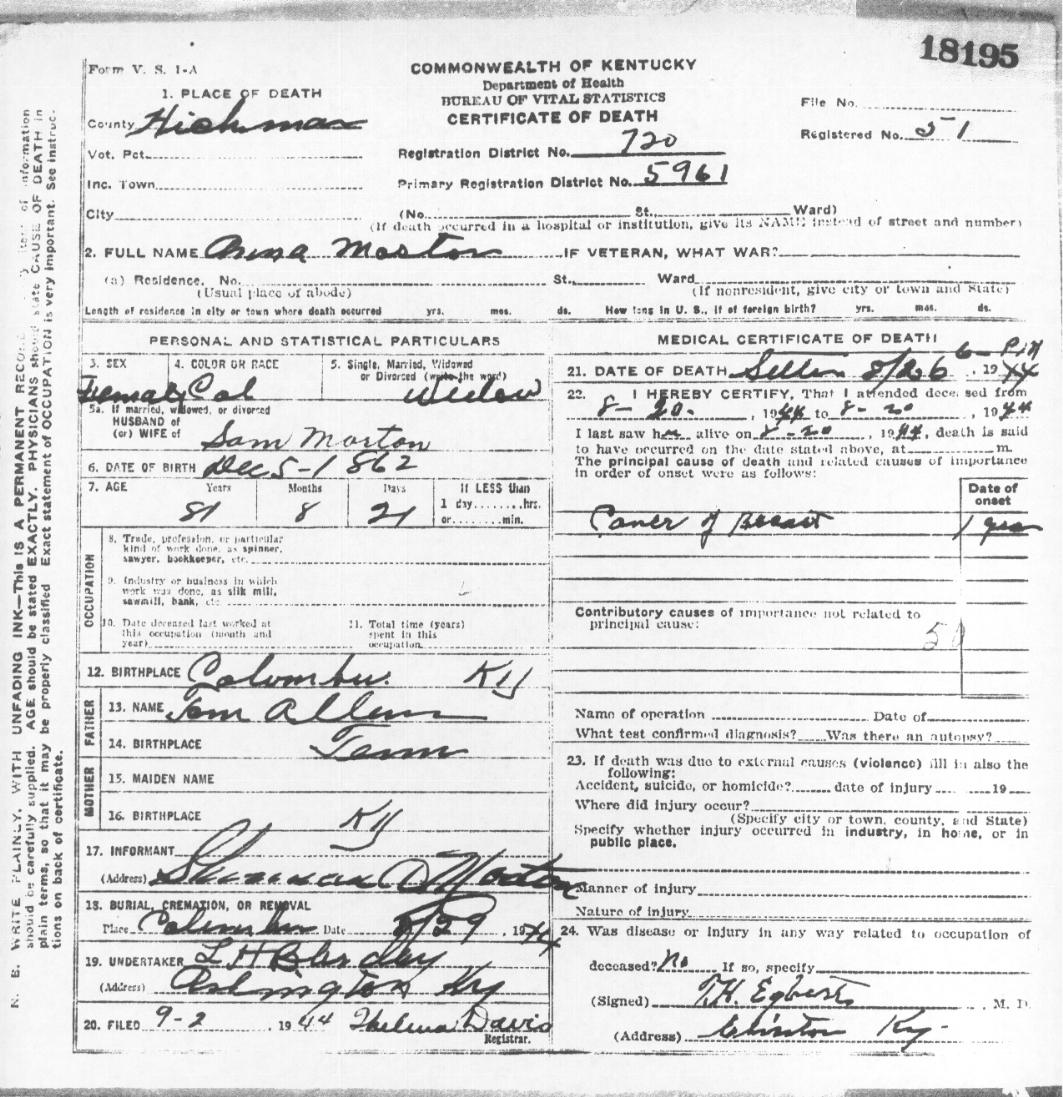 18195
Form V. S. 1-A
COMMONWEALTH OF KENTUCKY
Department of Health
BUREAU OF VITAL STATISTICS
CERTIFICATE OF DEATH
File No.
Registered No. 51
1. PLACE OF DEATH
County Hickman
Vot. Pct.
Registration District No. 720
Inc. Town
Primary Registration District No. 5961
City (No. St. Ward)
(If death occurred in a hospital or institution, give its NAME instead of street and number)
2. FULL NAME Anna Morton IF VETERAN, WHAT WAR?
(a) Residence. No. St., Ward
(Usual place of abode) (If nonresident, give city or town and State)
Length of residence in city or town where death occurred yrs. mos. ds. How long in U. S., if of foreign birth? yrs. mos. ds.
PERSONAL AND STATISTICAL PARTICULARS
3. SEX 4. COLOR OR RACE 5. Single, Married, Widowed
or Divorced (write the word)
Female Col Widow
5a. If married, widowed, or divorced
HUSBAND of
(or) WIFE of Sam Morton
6. DATE OF BIRTH Dec 5-1862
7. AGE Years Months Days If LESS than
1 day........hrs.
or........min.
81 8 21
OCCUPATION
8. Trade, profession, or particular
kind of work done, as spinner,
sawyer, bookkeeper, etc.
9. Industry or business in which
work was done, as silk mill,
sawmill, bank, etc
10. Date deceased last worked at
this occupation (month and
year)
11. Total time (years)
spent in this
occupation
12. BIRTHPLACE Columbus. Ky
FATHER
13. NAME Tom Allen
14. BIRTHPLACE Tenn
MOTHER
15. MAIDEN NAME
16. BIRTHPLACE Ky
17. INFORMANT
(Address) Sherman A Morton
18. BURIAL, CREMATION, OR REMOVAL
Place Columbus Date 8/29, 1944
19. UNDERTAKER L H
(Address) Arlington Ky
20. FILED 9-2, 1944 Thelma Davis
Registrar.
MEDICAL CERTIFICATE OF DEATH
6- PM
21. DATE OF DEATH 8/26, 1944
22. I HEREBY CERTIFY, That I attended deceased from
8-20., 1944 to 8-20, 1944
I last saw her alive on 8-20, 1944, death is said
to have occurred on the date stated above, at m.
The principal cause of death and related causes of importance
in order of onset were as follows:
Date of
onset
Caner of Breast 1 year
Contributory causes of importance not related to
principal cause:
50
Name of operation Date of
What test confirmed diagnosis? Was there an autopsy?
23. If death was due to external causes (violence) fill in also the
following:
Accident, suicide, or homicide? date of injury 19
Where did injury occur?
(Specify city or town, county, and State)
Specify whether injury occurred in industry, in home, or in
public place.
Manner of injury
Nature of injury
24. Was disease or injury in any way related to occupation of
deceased? No If so, specify
(Signed) T.H. Egberts, M. D.
(Address) Clinton Ky.
N. B. WRITE PLAINLY, WITH UNFADING INK—This IS A PERMANENT RECORD item of information
should be carefully supplied. AGE should be stated EXACTLY. PHYSICIANS should state CAUSE OF DEATH in
plain terms, so that it may be properly classified. Exact statement of OCCUPATION is very important. See instruc-
tions on back of certificate.